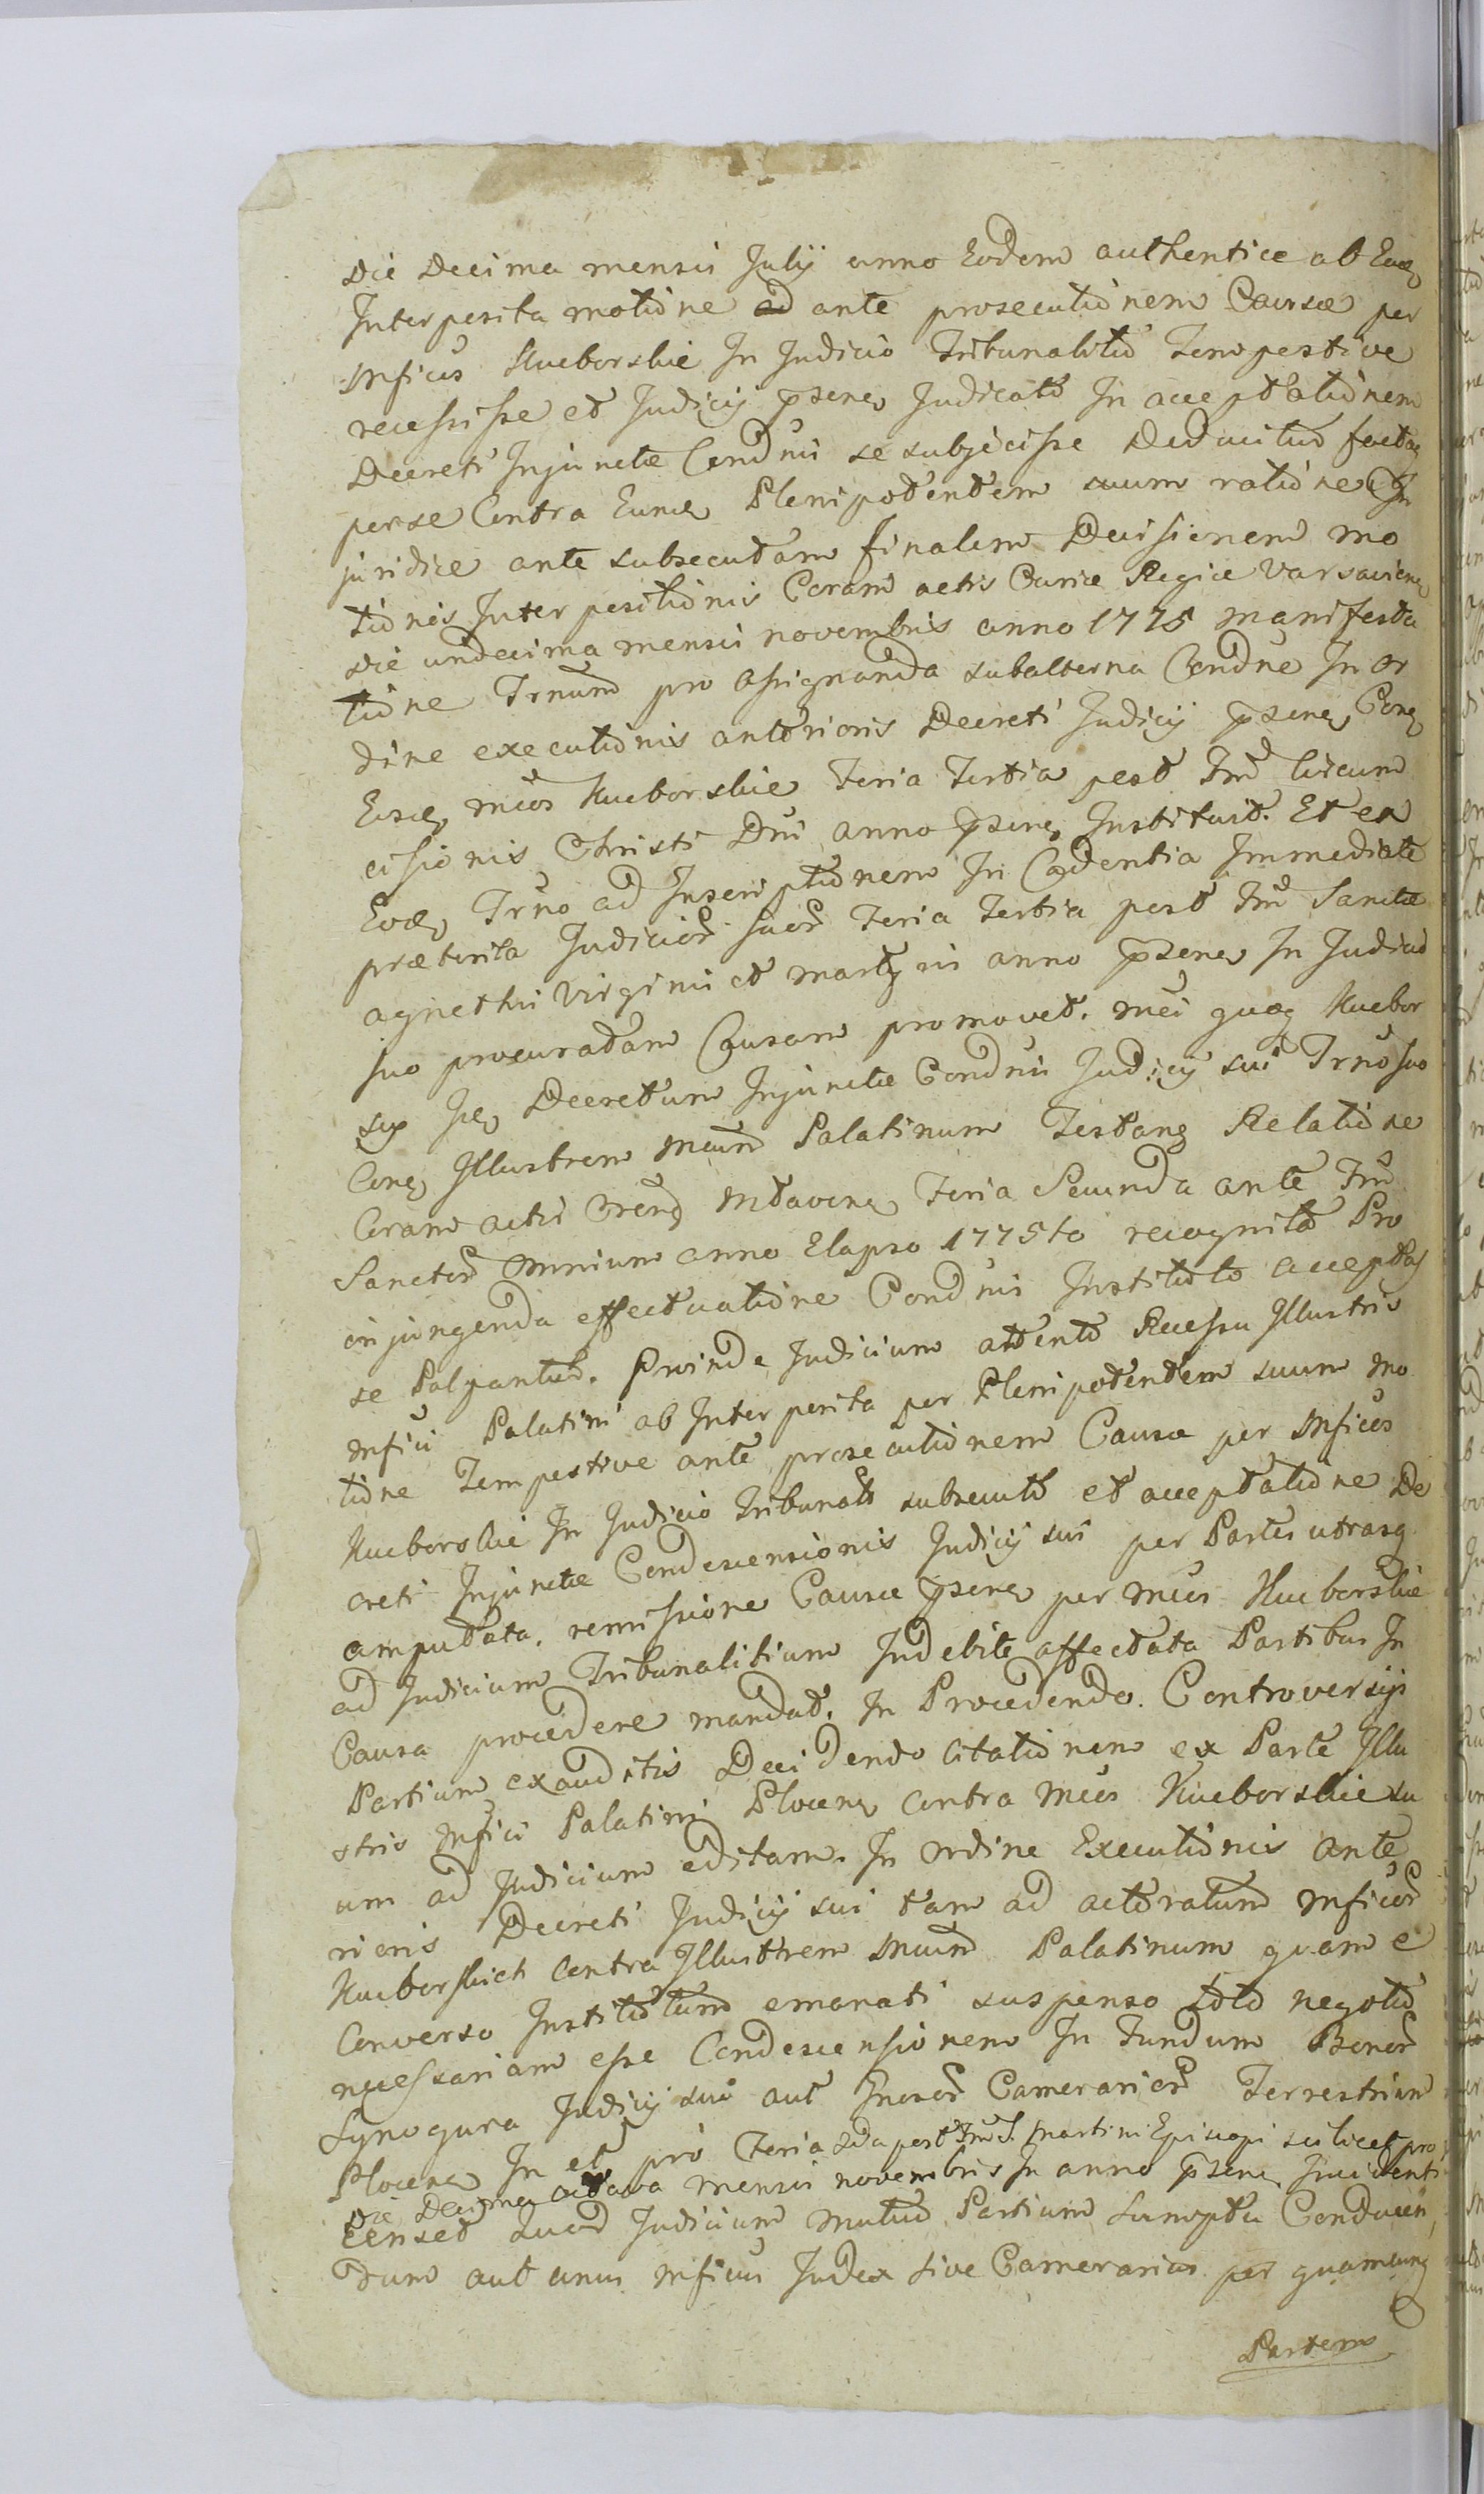 Die Decima mensis Julij anno Eodem authentice ab Eaeq
Interposita motione ad ante prosecutionem Causae per
Mficos Kucborskie In Judicio Tribunalitio Tempestive
recessisse et Judicij psenq Judicato In acceptationem
Decreti Injunctae Condnis se subjecisse Deducitur factaq
per se Contra Eumq Plenipotentem suum ratione In
juridice ante subsecutam finalem Decisionem mo
tionis Interpositionis Coram actis Curiae Regiae Varsavienq
Die undecima mensis novembris anno 1775 manifesta
tione Trnum pro assignanda subalterna Condne In or
dine executionis anterioris Decreti Judicij psenq Conq
Eosq mcos Kucborskie Feria Tertia post Fm Circum
cisionis Christi Dni anno psenq Instituit. Et ex
Eoq Trno ad Inscriptionem In Cadentia Immediate
praeterita Judicior suor Feria Tertia post Fm Sanctae
agnethis Virginis et martyris anno psenq In Judicio
suo procuratam Causam promovet. mci quoq Kucbor
scy Decretum Injunctae Condnis Judicij sui Trno suo
Conq Illustrem Mcum Palatinum Testanq Relatione
Coram actis Mtavenq Feria Secunda ante Fm
Sanctor Omnium anno Elapso 1775to recognito Pro
injungenda effectuatione Condnis Instituto acceptas
se Proinde Judicium attento Recessu Illustris
Mfici Palatini ab Interposita per Plenipotentem suum mo
tione Tempestive ante prosecutionem Causae per Mficos
Kucborskie In Judicio Tribunali subsecuto et acceptatione De
creti Injunctae Condescensionis Judicij sui per Partes utrasq
amputata, remissione Causae psenq per mcos Kucborskie
ad Judicium Tribunalitium Indebite affectata Partibus In
Causa procedere mandat. In Procedendo. Controversijs
Partium exauditis Decidendo Citationem ex Parte Illu
stris Mfici Palatini Plocenq Contra mcos Kucborskie su
um ad Judicium editam. In ordine Executionis ante
rioris Decreti Judicij sui tam ad actoratum Mficor
Kucborskich Contra Illustrem Mcum Palatinum quam e
Converso Institutum emanati suspenso toto negotio
necessariam esse Condescensionem In Fundum Bonor
Lynogura Judicij sui aut Camerarior Terrestrium
Plocenq In et pro Feria 2da post Fm S. Martini Episcopi scilicet pro
Die Decima octava mensis novembris In anno psenq Incidenti
Censet Quod Judicium mutuo Partium Sumptu Conducen,
dum aut unus Mficus Judex sive Camerarius per quamcunq
Partem